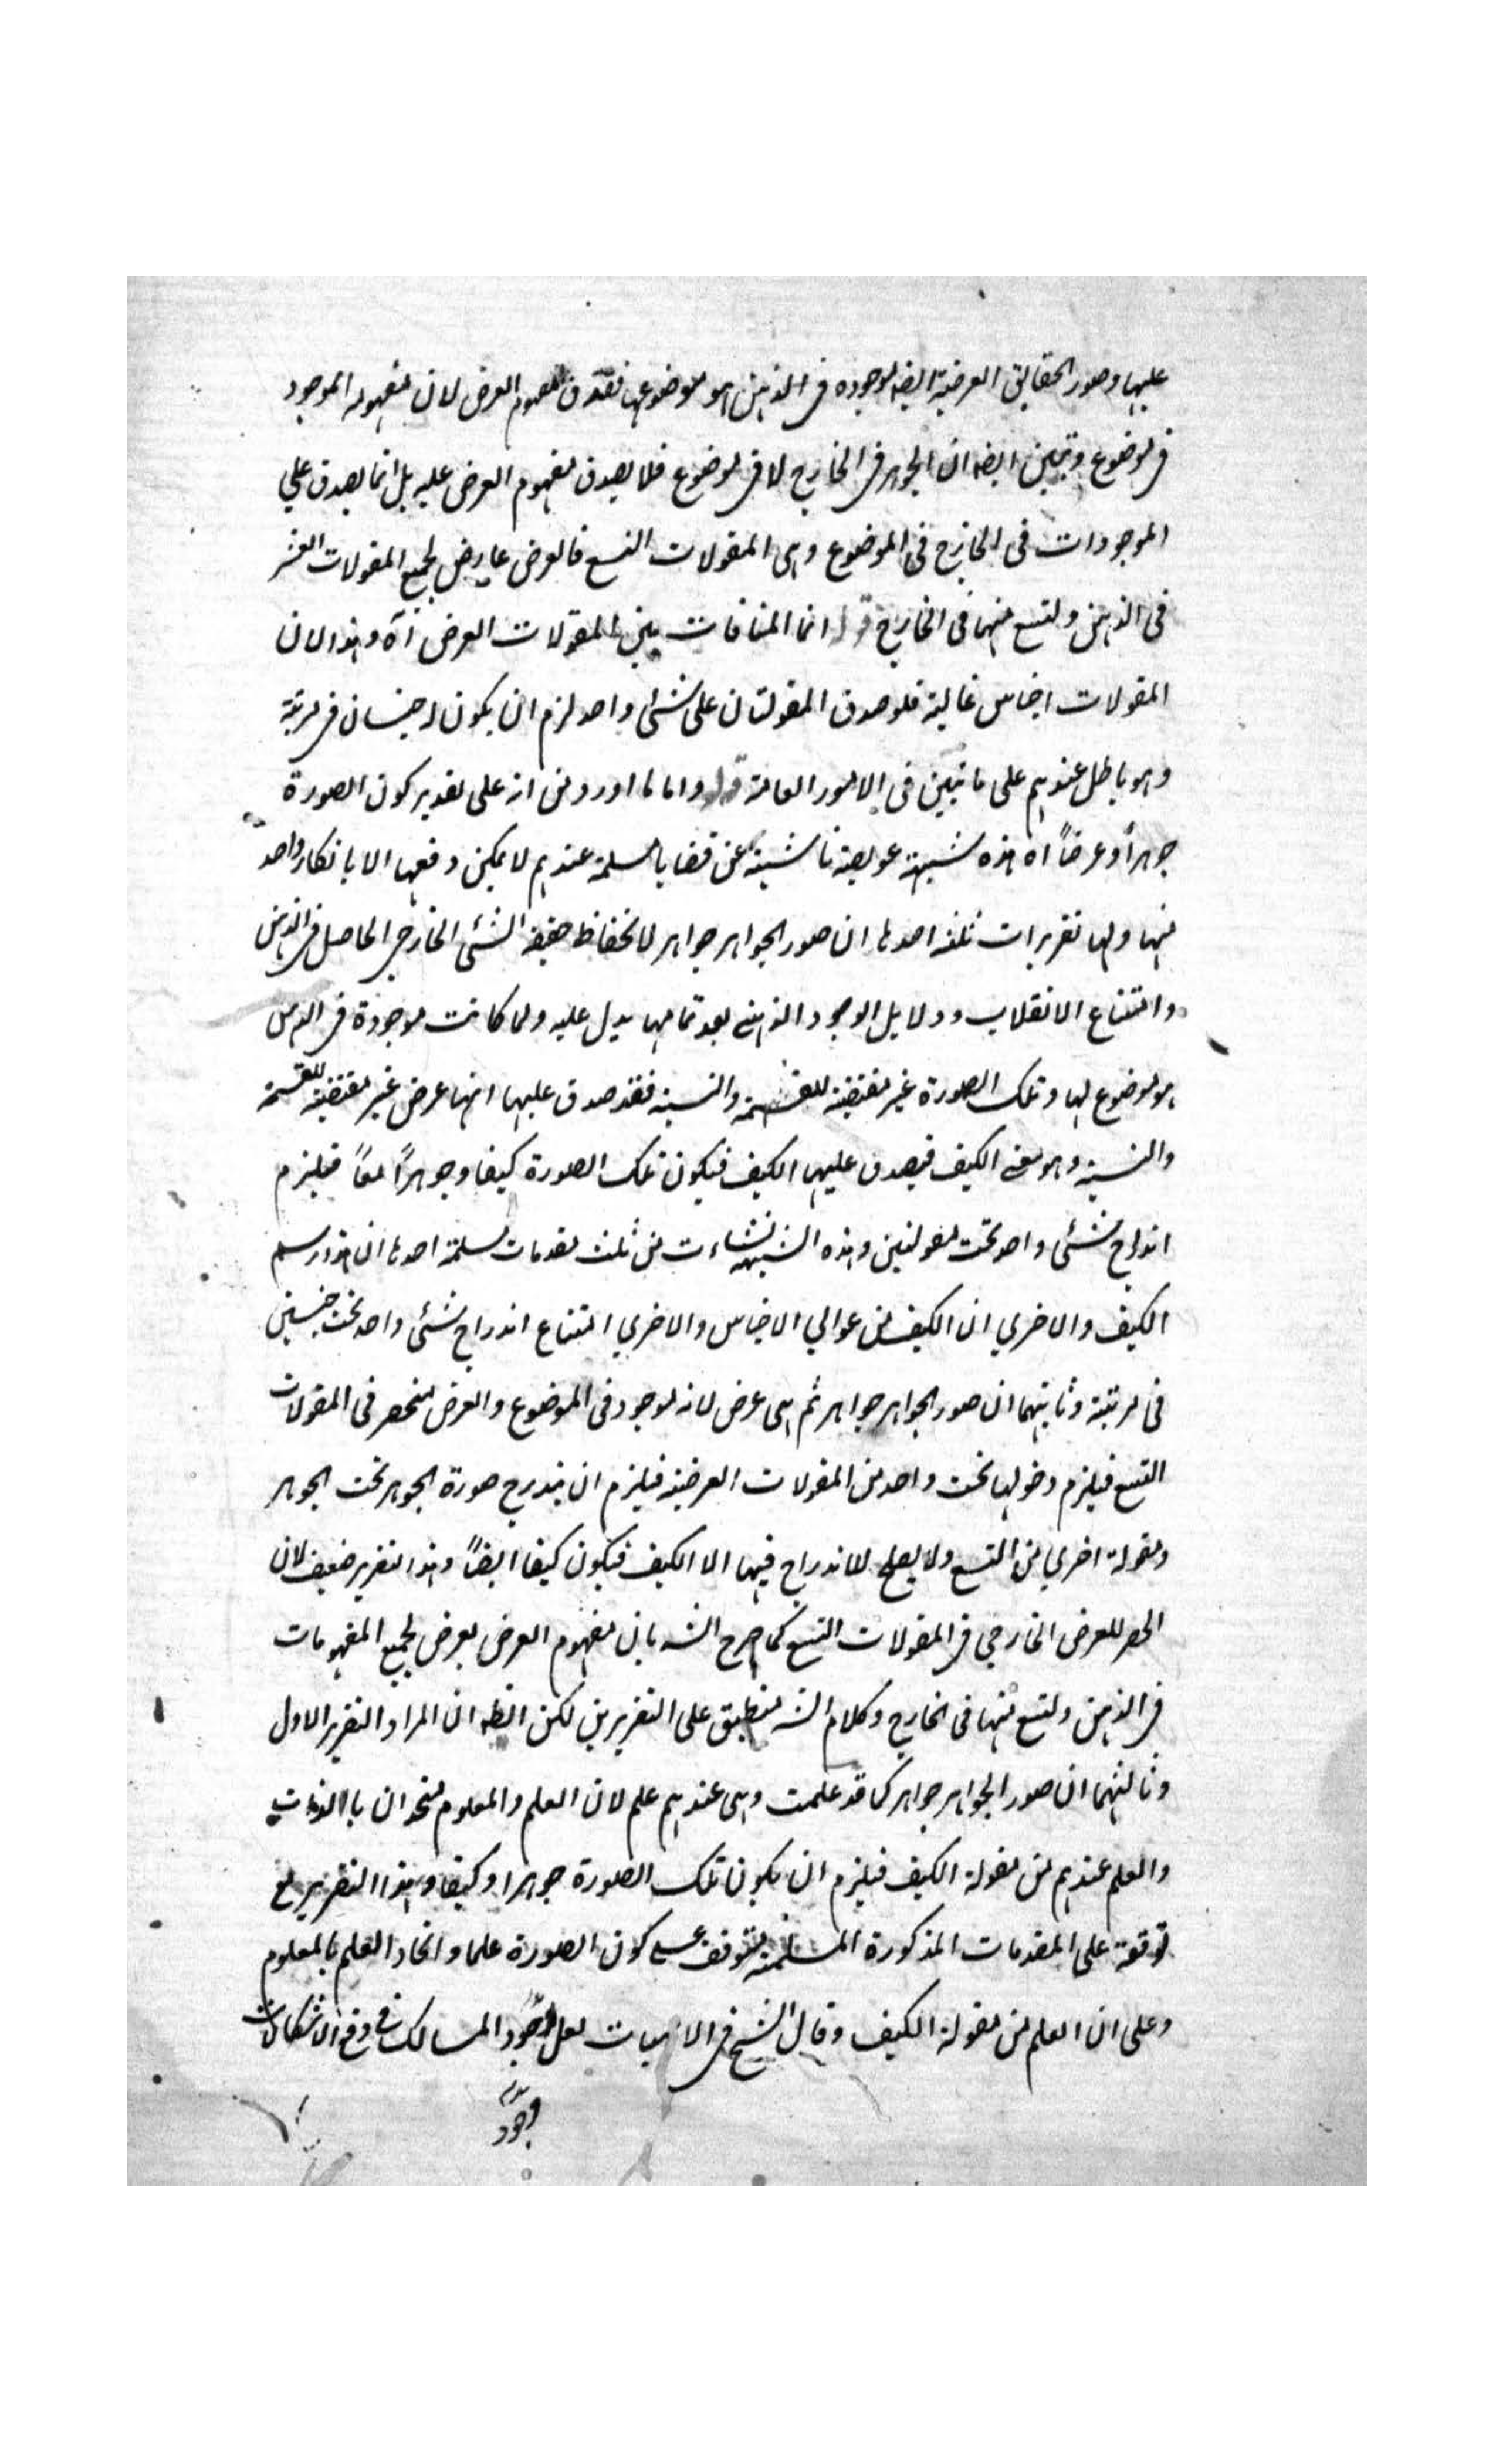 عليها وصور الحقايق العرضية ايضه موجودة فى الذهن هو موضوعها فصدق مفهوم العرض لان مفهومه الموجود
فى موضوع وتبين ايضه ان الجوهر فى الخارج لا فى موضوع فلا يصدق مفهوم العرض عليه بل انما يصدق على
الموجودات فى الخارج فى الموضوع وهى المقولات التسع فالعرض عارض لجميع المقولات العشر
فى الذهن ولتسع منها فى الخارج قوله انما المنافات بين المقولات العرض آه وهذا لان
المقولات اجناس عالية فلو صدق المقولتان على شئ واحد لزم ان يكون له جنسان فى مرتبة
وهو باطل عندهم على ما تبين فى الامور العامة قوله واما ما اورد من انه على تقدير كون الصورة
جوهراً وعرضاً اه هذه شبهة عويصة ناشية عن قضايا مسلمة عندهم لا يمكن دفعها الا بانكار واحد
منها ولها تقريرات ثلثه احدها ان صور الجواهر جواهر لانحفاظ حقيقة الشئ الخارجى الحاصل فى الذهن
وامتناع الانقلاب ودلايل الوجود الذهنى بعد تمامها يدل عليه ولما كانت موجودة فى الذهن
هو موضوع لها وتلك الصورة غير مقتضية للقسمة والنسبة فقد صدق عليها انها عرض غير مقتضية للقسمة
والنسبة وهو معنى الكيف فيصدق عليها الكيف فيكون تلك الصورة كيفا وجوهراً معاً فيلزم
اندراج شئ واحد تحت مقولتين وهذه الشبهة نشاءت من ثلث مقدمات مسلمة احدها ان هذا رسم
الكيف والاخرى ان الكيف من عوالى الاجناس والاخرى امتناع اندراج شئ واحد تحت جنسين
فى مرتبة وثانيهما ان صور الجواهر جواهر ثم هى عرض لانه موجود فى الموضوع والعرض منحصر فى المقولات
التسع فيلزم دخولها تحت واحد من المقولات العرضية فيلزم ان يندرج صورة الجوهر تحت الجوهر
ومقولة اخرى من التسع ولا يصلح للاندراج فيها الا الكيف فيكون كيفا ايضاً وهذا التقرير ضعيف لان
الحصر للعرض الخارجى فى المقولات التسع كما صرح الشه بان مفهوم العرض يعرض لجميع المفهومات
فى الذهن ولتسع منها فى الخارج وكلام الشه منطبق على التقريرين لكن الظه ان المراد التقرير الاول
وثالثهما ان صور الجواهر جواهر كما قد علمت وهى عندهم علم لان العلم والمعلوم متحدان بالذات
والعلم عندهم من مقولة الكيف فيلزم ان يكون تلك الصورة جوهرا وكيفا وهذا التقرير مع
توقفه على المقدمات المذكورة المسلمة يتوقف على كون الصورة علما واتحاد العلم بالمعلوم
وعلى ان العلم من مقولة الكيف وقال الشيخ فى الالهيات لعل اجود المسالك فى دفع الاشكالات